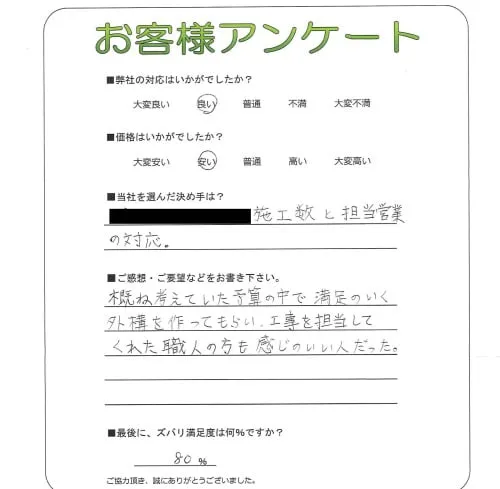 お客様アンケート
■弊社の対応はいかがでしたか？
大変良い 良い 普通 不満 大変不満
■価格はいかがでしたか？
大変安い 安い 普通 高い 大変高い
■当社を選んだ決め手は？
施工数と担当営業
の対応。
■ご感想・ご要望などをお書き下さい。
概ね考えていた予算の中で満足のいく
外構を作ってもらい、工事を担当して
くれた職人の方も感じのいい人だった。
■最後に、ズバリ満足度は何%ですか？
80 %
ご協力頂き、誠にありがとうございました。